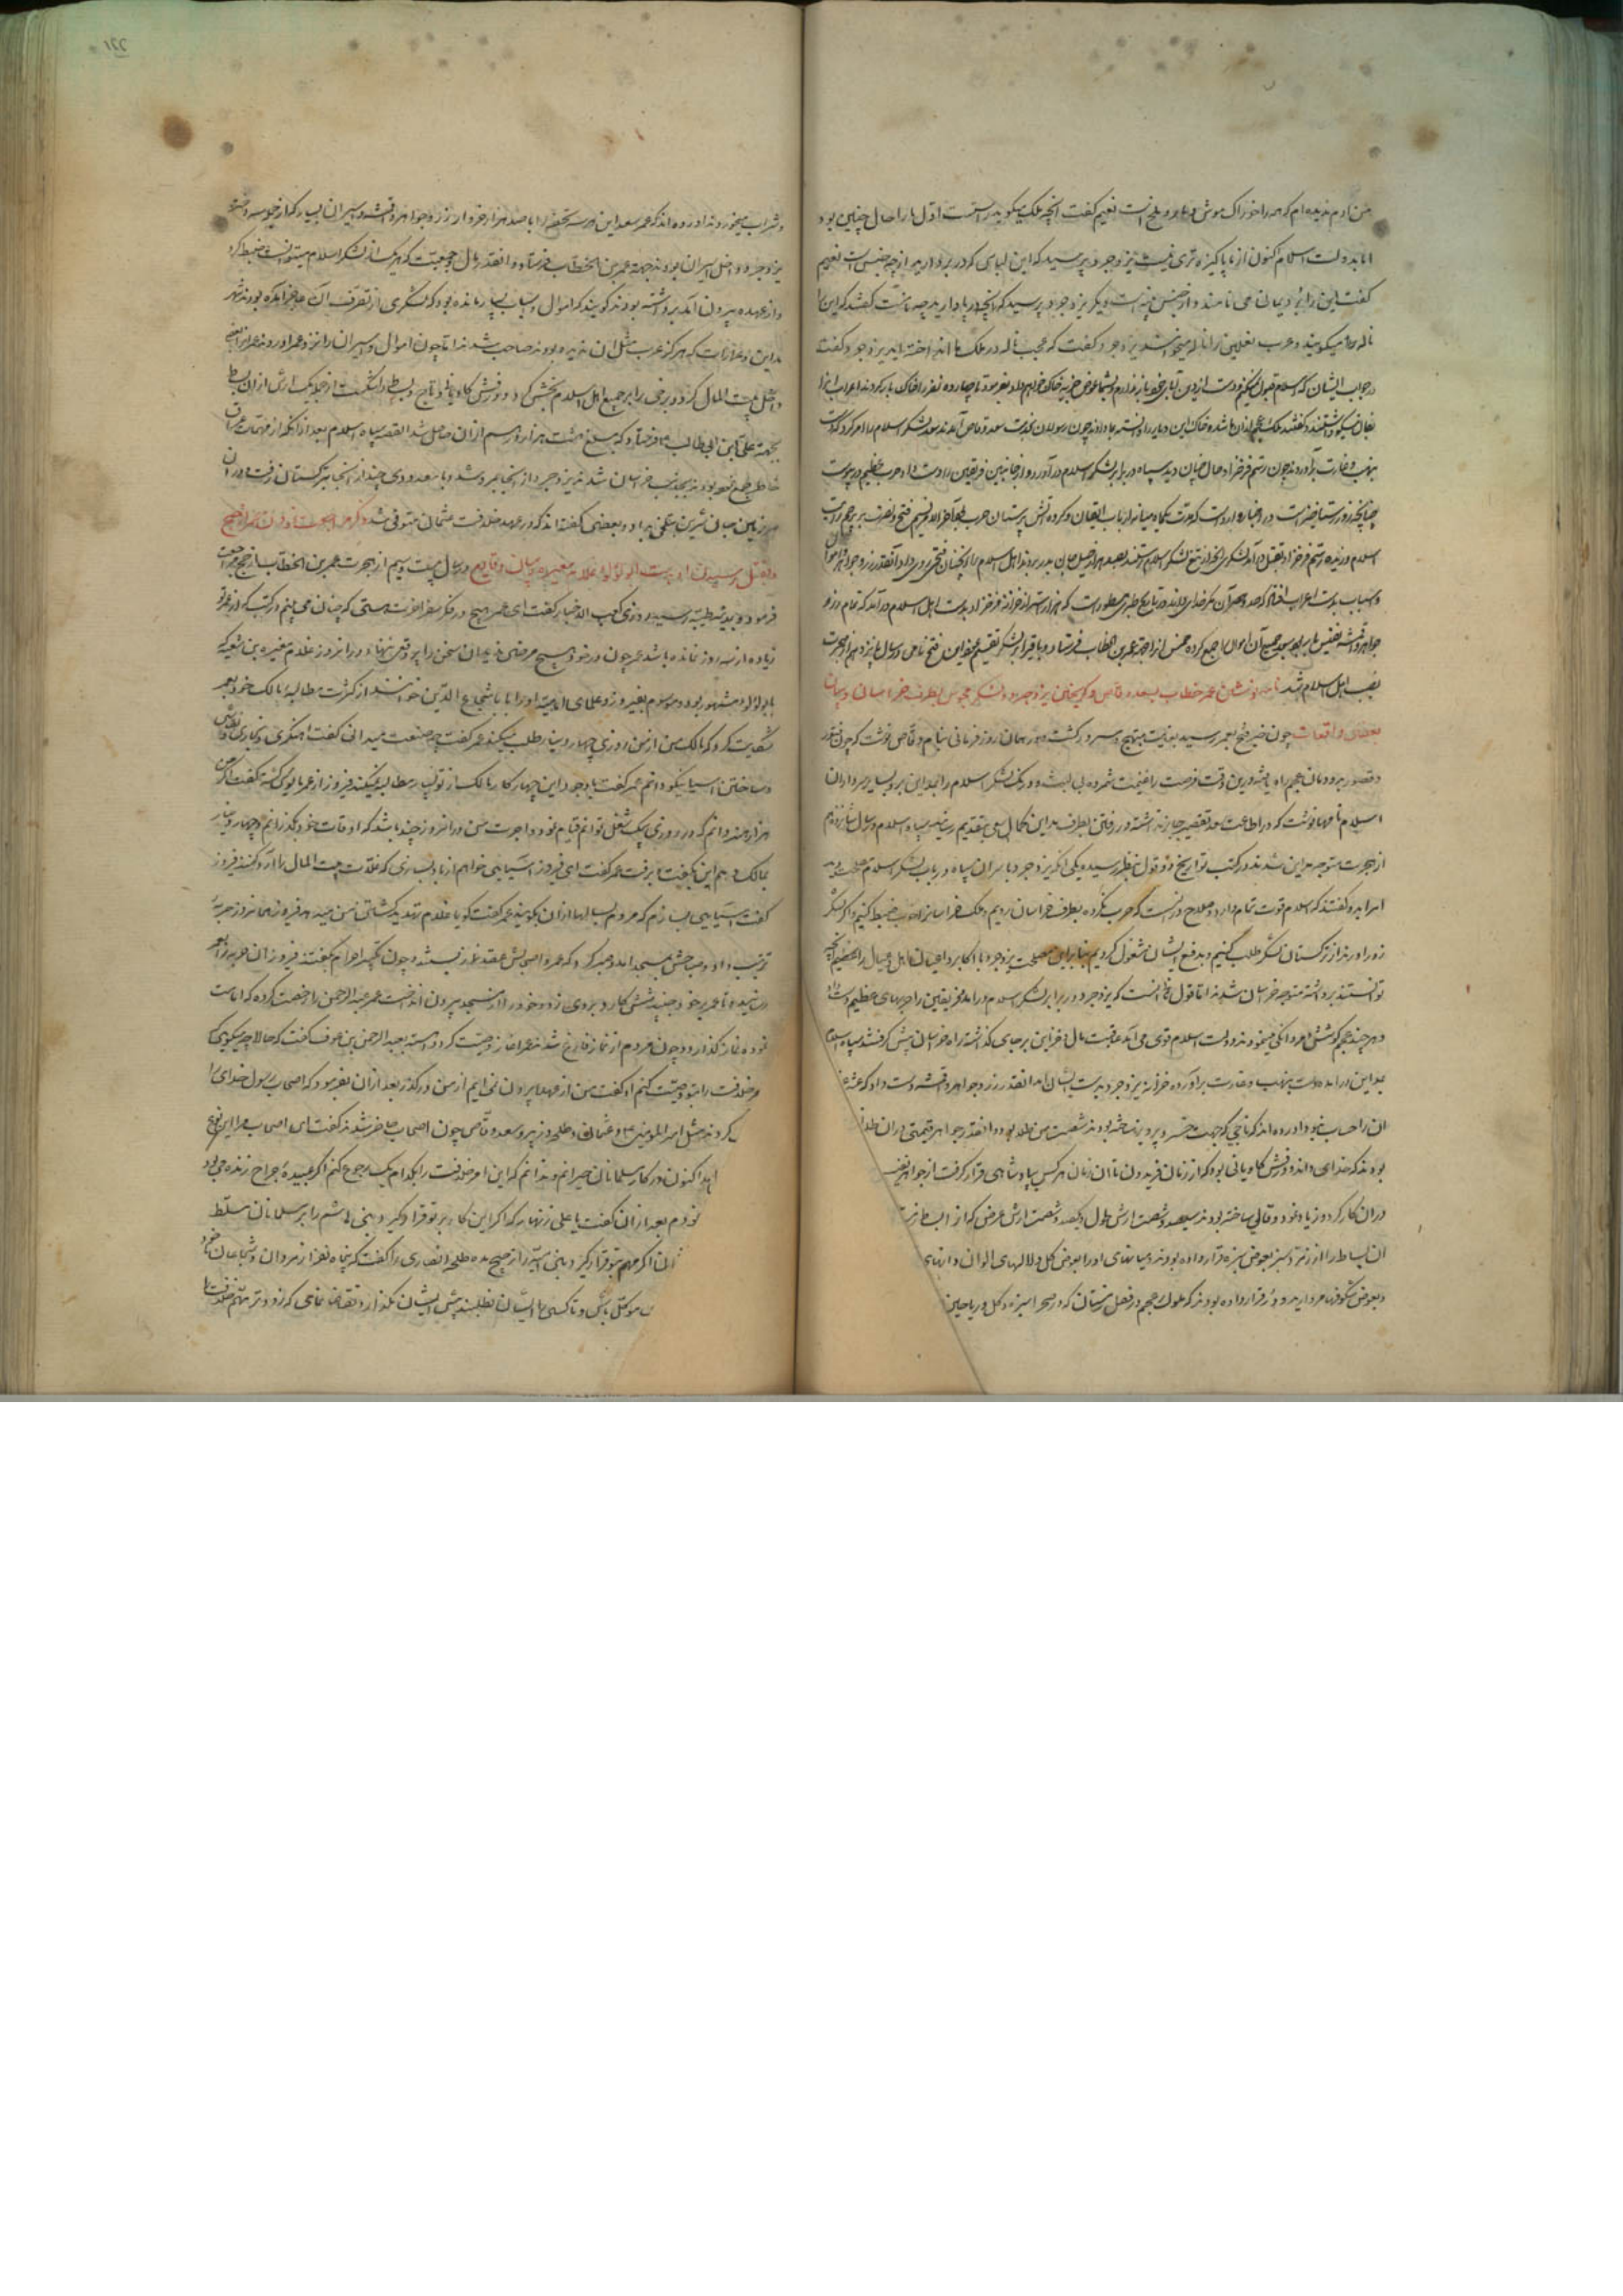 من آدم ندیده‌ام که همه را خوراک موش و مار و ملخ است نعیم گفت آنچه ملک میگوید راستست اول ما را حال چنین بود
اما بدولت اسلام اکنون از ما پاکیزه تری نیست یزدجرد پرسید که این لباس که در بر دارید از چه جنس است نعیم
گفت این را برد یمانی می نامند و از جنس پنبه است دیگر یزدجرد پرسید که آنچه در پا دارید چه نامست گفتند که این را
ناله میگویند و عرب نعلین را ناله میخوانند یزدجرد گفت که عجب ناله در ملک ما انداخته اید یزدجرد گفت
در جواب ایشان که اسلام قبول نمیکنم و دست از دین آبای خود باز ندارم و بشما عوض جزیه خاک خواهم داد بفرمود تا چهارده نفر را خاک بار کردند اعراب آنرا
بفال نیکو داشتند و گفتند ملک عجم از آن ما شد که خاک این دیار را دانسته بما دادند چون رسولان بخدمت سعد وقاص آمدند سعد لشکر اسلام را امر کرد که دست
بنهب و غارت برآوردند چون رستم فرخزاد حال چنان دید سپاه در برابر لشکر اسلام در آورد و از جانبین فریقین را دست داد حرب عظیم در پیوست
چنانچه روز رستاخیز است در اخبار وارد است که مدت یکماه میانه ارباب ایقان و گروه آتش پرستان حرب
اسلام وزیده رستم فرخزاد بقتل درآمد لشکری که از تیغ لشکر اسلام
و اسباب بدست اعراب افتاد که حد و حصر آن مگر خدای داند در تاریخ طبری مسطورست که از خزانه فرخزاد بدست اهل اسلام درآمد که تمام زر و
جواهر و اقمشه نفیس بود سعد جمیع آن اموال را جمع کرده خمس از آن جهة عمر بن خطاب فرستاد و باقی را بر لشکر تقسیم نمود این فتح نامی در سال پانزدهم از هجرت
نصیب اهل اسلام شد نامه نوشتن عمر خطاب بسعد وقاص و گریختن یزدجرد و لشکر مجوس بطرف خراسان و بیان
بعضی واقعات چون خبر فتح بعمر رسید بغایت مبتهج و مسرور گشت در همان روز فرمانی بنام وقاص نوشت که چون فتور
و قصور بدودمان عجم راه یافته درین وقت فرصت را غنیمت شمرده بی لبث و درنگ لشکر اسلام را بمداین برد بسایر سرداران
اسلام نامها نوشت که در اطاعت سعد تقصیر جایز نداشته در رفتن بطرف مداین کمال سعی بتقدیم رسانند سپاه اسلام در سال شانزدهم
از هجرت متوجه مداین شدند در کتب تواریخ دو قول بنظر رسیده یکی آنکه یزدجرد با سران سپاه در باب لشکر اسلام مصلحت دید
امرا بدو گفتند که اسلام قوت تمام دارد و صلاح در آنست که حرب نکرده بطرف خراسان رویم و ملک خراسان را ضبط کنیم و اگر لشکر
زور آورند از ترکستان لشکر طلب کنیم و بدفع ایشان مشغول گردیم بنابراین مصلحت یزدجرد با اکابر و اعیان و اهل و عیال آنچه
توانستند برداشته متوجه خراسان شدند اما قول اصح آنست که یزدجرد در برابر لشکر اسلام درآمد فریقین را حربهای عظیم دست داد
و هر چند عجم کوشش مردانگی مینمودند دولت اسلام قوی می آمد عاقبت مال و خزاین بر جای گذاشته راه خراسان پیش گرفتند سپاه اسلام
بمداین درآمده دست بنهب و غارت برآورده خزاین یزدجرد بدست ایشان آمد آنقدر زر و جواهر و اقمشه دست داد که عشر عشیر
آن را حساب نبود آورده اند که تاجی که جهت خسرو پرویز ساخته بودند شصت من طلا بود و آنقدر جواهر قیمتی در آن طلا
بودند که خدای داند و درفش کاویانی بود که از زمان فریدون تا آن زمان هر کس پادشاهی قرار گرفت از جواهر نفیس
در آن کار کرده زیاد نمود و قالی ساخته بودند سیصد و شصت ارش طول و یکصد و شصت ارش عرض که آن بساط
آن بساط را از زمرد سبز بعوض سبزه قرار داده بودند و میانهای او را بعوض گل و لالهای الوان دانهای
و بعوض شکوفها مروارید و در قرار داده بودند که ملوک عجم در فصل زمستان که در صحرا سبزه و گل و ریاحین
و شراب میخوردند آورده اند که عمر سعد این هر سه تحفه را با صد هزار خروار زر و جواهر و اقمشه و اسیران بسیار که از جمله سه دختر
یزدجرد داخل اسیران بودند جهة عمر بن الخطاب فرستاد و آنقدر مال و جمعیت که هر کس از لشکر اسلام میتوانست ضبط کرد
و از عهده بیرون آمد برداشته بودند گویند که اموال و اسباب بسیار مانده بود که لشکری از تصرف آن عاجز آمده بودند شهر
مداین و عمارات که هرگز عرب مثل آن ندیده بودند صاحب شدند اما چون اموال و اسیران را نزد عمر آوردند عمر
داخل بیت المال کرد و برخی را بر جمیع اهل اسلام بخش کرد و درفش کاویانی و تاج و بساط را شکست از جمله یک ارش از آن بساط
بجهة علی بن ابی طالب فرستاد که مبلغ هشت هزار درم از آن حاصل شد القصه سپاه اسلام بعد از آنکه از مهمات
خاطر جمع نمود بودند بجانب خراسان شدند یزدجرد از آنجا بمرو شد و با معدودی چند از آنجا بترکستان رفت و در آن
سرزمین جان شیرین بتلخی بداد و بعضی گفته اند که در عهد خلافت عثمان متوفی شد ذکر مراجعت نمودن عمر از حج
و بقتل رسیدن او بدست ابو لؤلؤ غلام مغیره و بیان وقایع در سال بیست و سیم از هجرت عمر بن الخطاب از حج مراجعت
فرمود و بمدینه طیبه رسید روزی کعب الاخبار گفت ای عمر هیچ در فکر سفر آخرت هستی که چنان می بینم در کتب که از عمر تو
زیاده از سه روز نمانده باشد عمر چون در خود هیچ مرضی ندید آن سخن را بر وقعی ننهاد در آنروز غلام مغیره بن شعبه که
بابو لؤلؤ مشهور بود و موسوم بفیروز و علمای امامیه او را بابا شجاع الدین خوانند از کثرت مطالبه مالک خود بعمر
شکایت کرد که مالک من از من روزی چهار دینار طلب میکند عمر گفت چه صنعت میدانی گفت آهنگری و نجاری و نقاشی
و ساختن آسیا نیکو دانم عمر گفت با وجود این چهار کار مالک از تو بسیار مطالبه نمیکند فیروز از عمر مأیوس گشته گفت اگر من
هزار هنر دانم که در روزی بیک شغل توانم قیام نمود و اجرت من در آنروز چند باشد که اوقات خود بگذرانم و چهار دینار
بمالک دهم این بگفت و برفت عمر گفت ای فیروز آسیایی خواهم از باد بسازی که غلات بیت المال را آرد کند فیروز
گفت آسیایی بسازم که مردم بسالها از آن بگویند عمر گفت گویا غلام تهدید کشتن من میدهد فیروز همان روز حربه
ترتیب داد و صباحش بمسجد آمد و صبر کرد که عمر و اصحابش عقد نماز بستند و چون تکبیر احرام گفتند فیروز آن حربه را بعمر
رسانیده تا عمر بر خود جنبید شش کارد بر وی زد و خود را از مسجد بیرون انداخت عمر عبدالرحمن را رخصت کرده که امامت
نموده نماز گذارد و چون مردم از نماز فارغ شدند عمر آغاز وصیت کرد و آهسته بعبدالرحمن بن عوف گفت که حالا چه میگویی که
من خلافت را بتو وصیت کنم او گفت من از عهده بیرون نمی آیم از من درگذر بعد از آن بفرمود که اصحاب رسول خدای را
کردند مثل امیر المؤمنین و عثمان و طلحه و زبیر و سعد وقاص چون اصحاب حاضر شدند گفت ای اصحاب مرا این نوع
اکنون در کار مسلمانان حیرانم و ندانم که این امر خلافت را بکدام یک رجوع کنم اگر عبیده جراح زنده می بود
بعد از آن گفت یا علی زنهار که اگر این کار بر تو قرار گیرد بنی هاشم را بر مسلمانان مسلط
اگر مهم بتو قرار گیرد بنی را از صبح بده طلحه انصاری را گفت که پنجاه نفر از مردان و شجاعان
موکل باش و تا کسی را ایشان نطلبند پیش ایشان نگذار و تقاضا نمای که زودتر مهم خلافت را